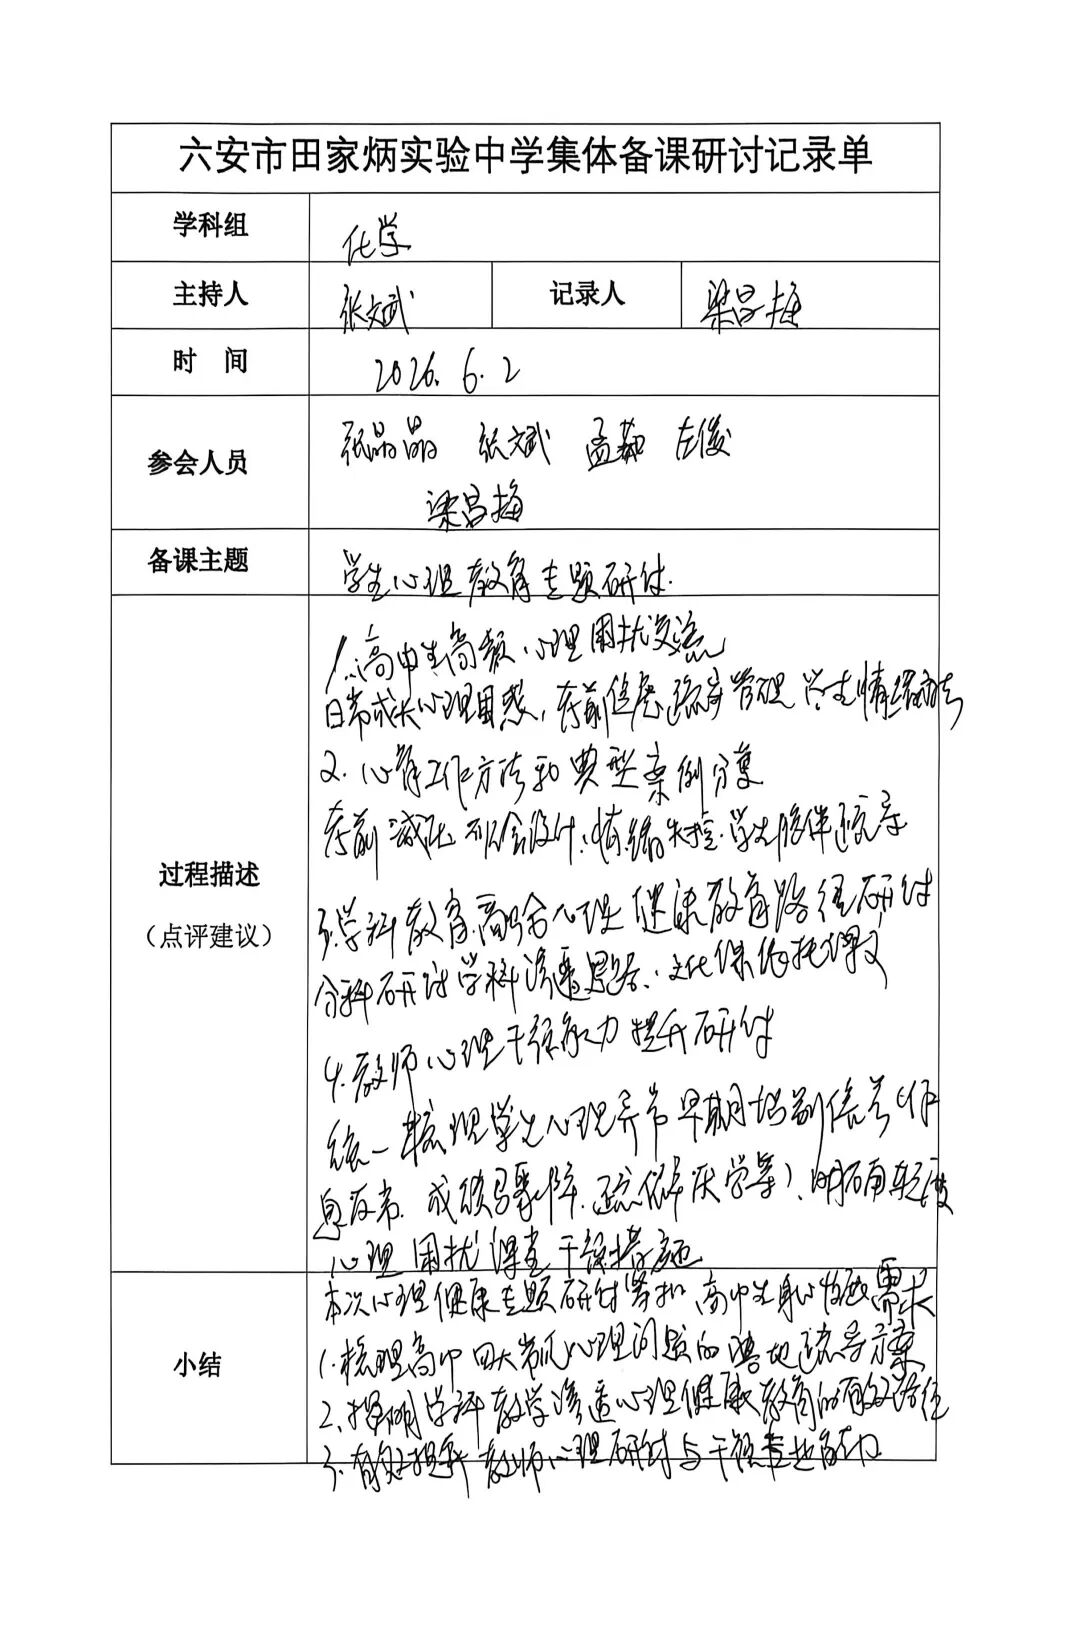 六安市田家炳实验中学集体备课研讨记录单
学科组 化学
主持人 张文斌 记录人 梁昌梅
时 间 2026.6.2
参会人员 张晶晶 张文斌 孟 左俊
梁昌梅
备课主题 学生心理教育专题研讨.
1.高中生高频心理困扰交流
日常成长心理困惑,考前焦虑疏导管理 学生情绪
2.心育工作方法和典型案例分享
考前减压班会设计、情绪失控学生陪伴疏导
过程描述
(点评建议)
3.学科教育融合心理健康教育路径研讨
分科研讨学科渗透思路、文化课依托课文
4.教师心理干预能力提升研讨
统一梳理学生心理异常早期识别信号(作
息反常、成绩骤降、疏解厌学等)、明确轻度
心理困扰课堂干预措施
小结
本次心理健康专题研讨紧扣高中生身心发展需求
1.梳理高中四大常见心理问题的落地疏导方案
2.探明学科教学渗透心理健康教育的有效路径
3.有效提升教师心理研讨与干预专业能力